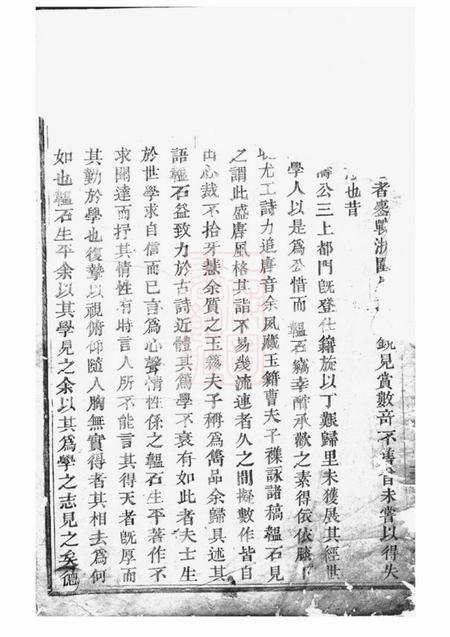 者鏖戰浙闈 銳見賞數奇不 自未嘗以得失
也昔
公三上都門旣登仕籍旋以丁艱歸里未獲展其經世
學人以是爲公惜而韞石竊幸酬承歡之素得依依膝
尤工詩力追唐音余夙藏玉籍曹夫子襍詠諸稿韞石見
之謂此盛唐風格其詣不易幾流連者久之間擬數作皆自
出心裁不拾牙慧余質之玉籍夫子稱爲雋品余歸具述其
語韞石益致力於古詩近體其篤學不衰有如此者夫士生
於世學求自信而已言爲心聲情性係之韞石生平著作不
求聞達而抒其情性有時言人所不能言其得天者旣厚而
其勤於學也復摯以視俯仰隨人胸無實得者其相去爲何
如也韞石生平余以其學見之余以其爲學之志見之矣德